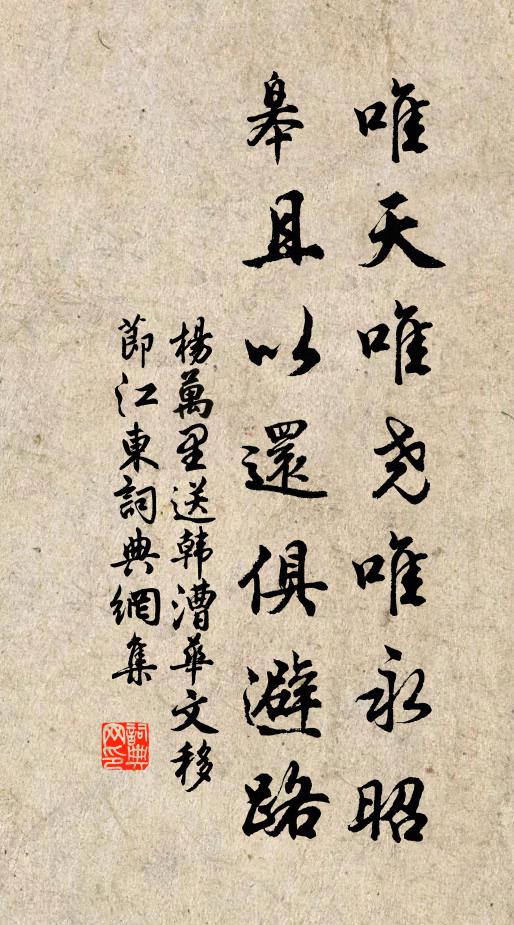 唯天唯尧唯永昭
皋且以還俱避路
楊萬里送韩漕華文移
節江東詞典網集
詞典
网印